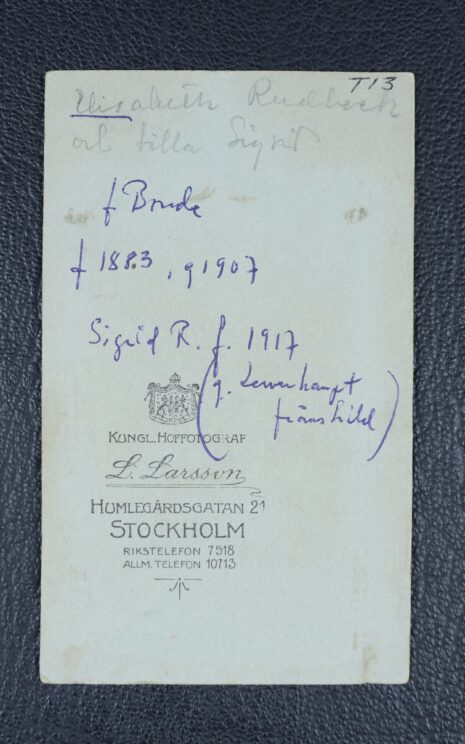 T13
Elisabeth Rudbeck
och lilla Sigrid
f Bonde
f 1883, g 1907
Sigrid R. f. 1917
(g.
KUNGL. HOFFOTOGRAF
L. Larsson
HUMLEGÅRDSGATAN 21
STOCKHOLM
RIKSTELEFON 7518
ALLM. TELEFON 10713